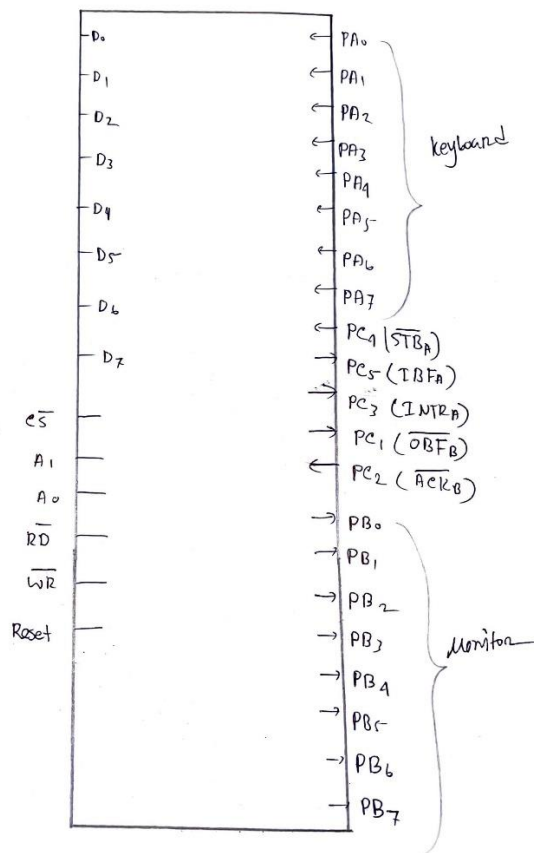 D₀
D₁
D₂
D₃
D₄
D₅
D₆
D₇
C̅S̅
A₁
A₀
R̅D̅
W̅R̅
Reset
PA₀
PA₁
PA₂
PA₃
PA₄
PA₅
PA₆
PA₇
keyboard
PC₄ (S̅T̅B̅_A)
PC₅ (IBF_A)
PC₃ (INTR_A)
PC₁ (O̅B̅F̅_B)
PC₂ (A̅C̅K̅_B)
PB₀
PB₁
PB₂
PB₃
PB₄
PB₅
PB₆
PB₇
Monitor